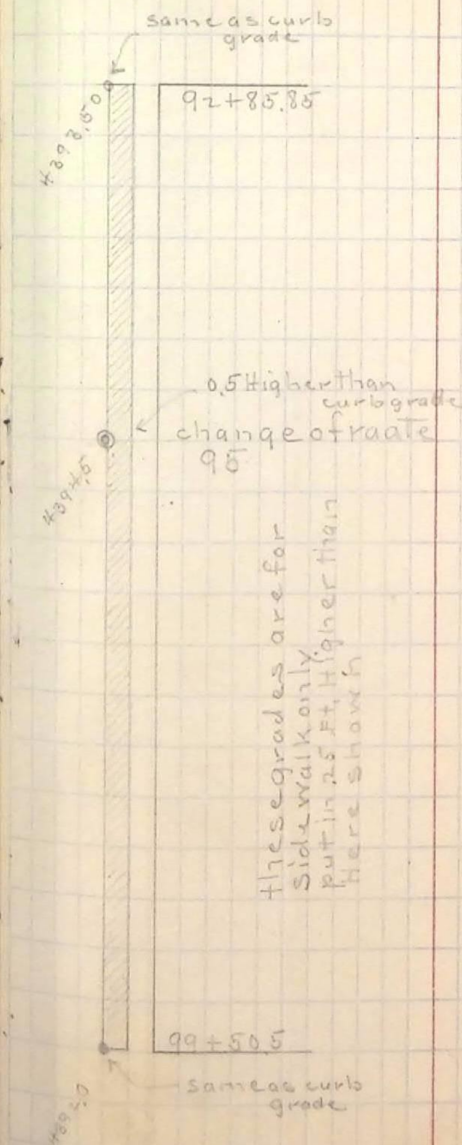 same as curb
grade
4393.500
92+85.85
0.5 Higher than
curb grade
change of raate
95
4394.5
these grades are for
Sidewalk only.
put in .25 Ft. Higher than
Here shown
99+50.5
same as curb
grade